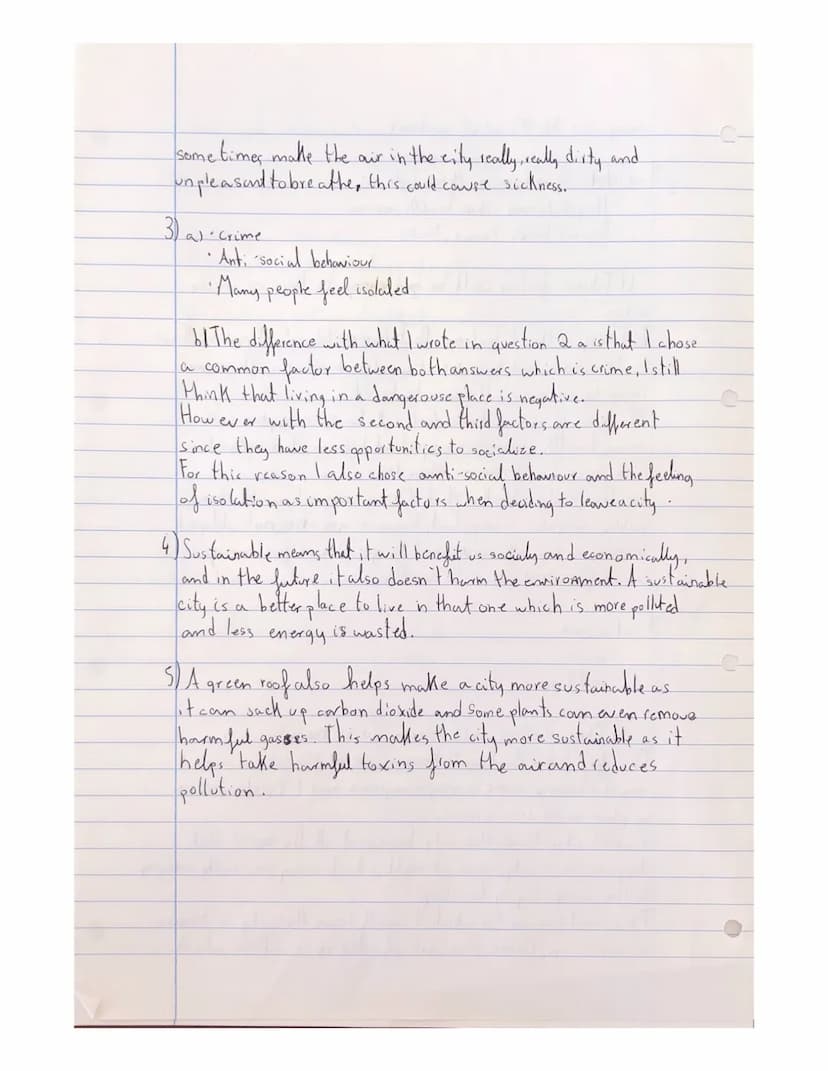 sometimes make the air in the city really, really dirty and
unpleasant to breathe, this could cause sickness.
3) a) · crime
· Anti-social behaviour
· Many people feel isolated
b) The difference with what I wrote in question 2 a is that I chose
a common factor between both answers which is crime, I still
think that living in a dangerouse place is negative.
However with the second and third factors are different
since they have less opportunities to socialize.
For this reason I also chose anti-social behaviour and the feeling
of isolation as important factors when deciding to leave a city.
4) Sustainable means that it will benefit us socialy and economically,
and in the future it also doesn't harm the environment. A sustainable
city is a better place to live in that one which is more polluted
and less energy is wasted.
5) A green roof also helps make a city more sustainable as
it can sack up carbon dioxide and some plants can even remove
harmful gasses. This makes the city more sustainable as it
helps take harmful toxins from the air and reduces
pollution.